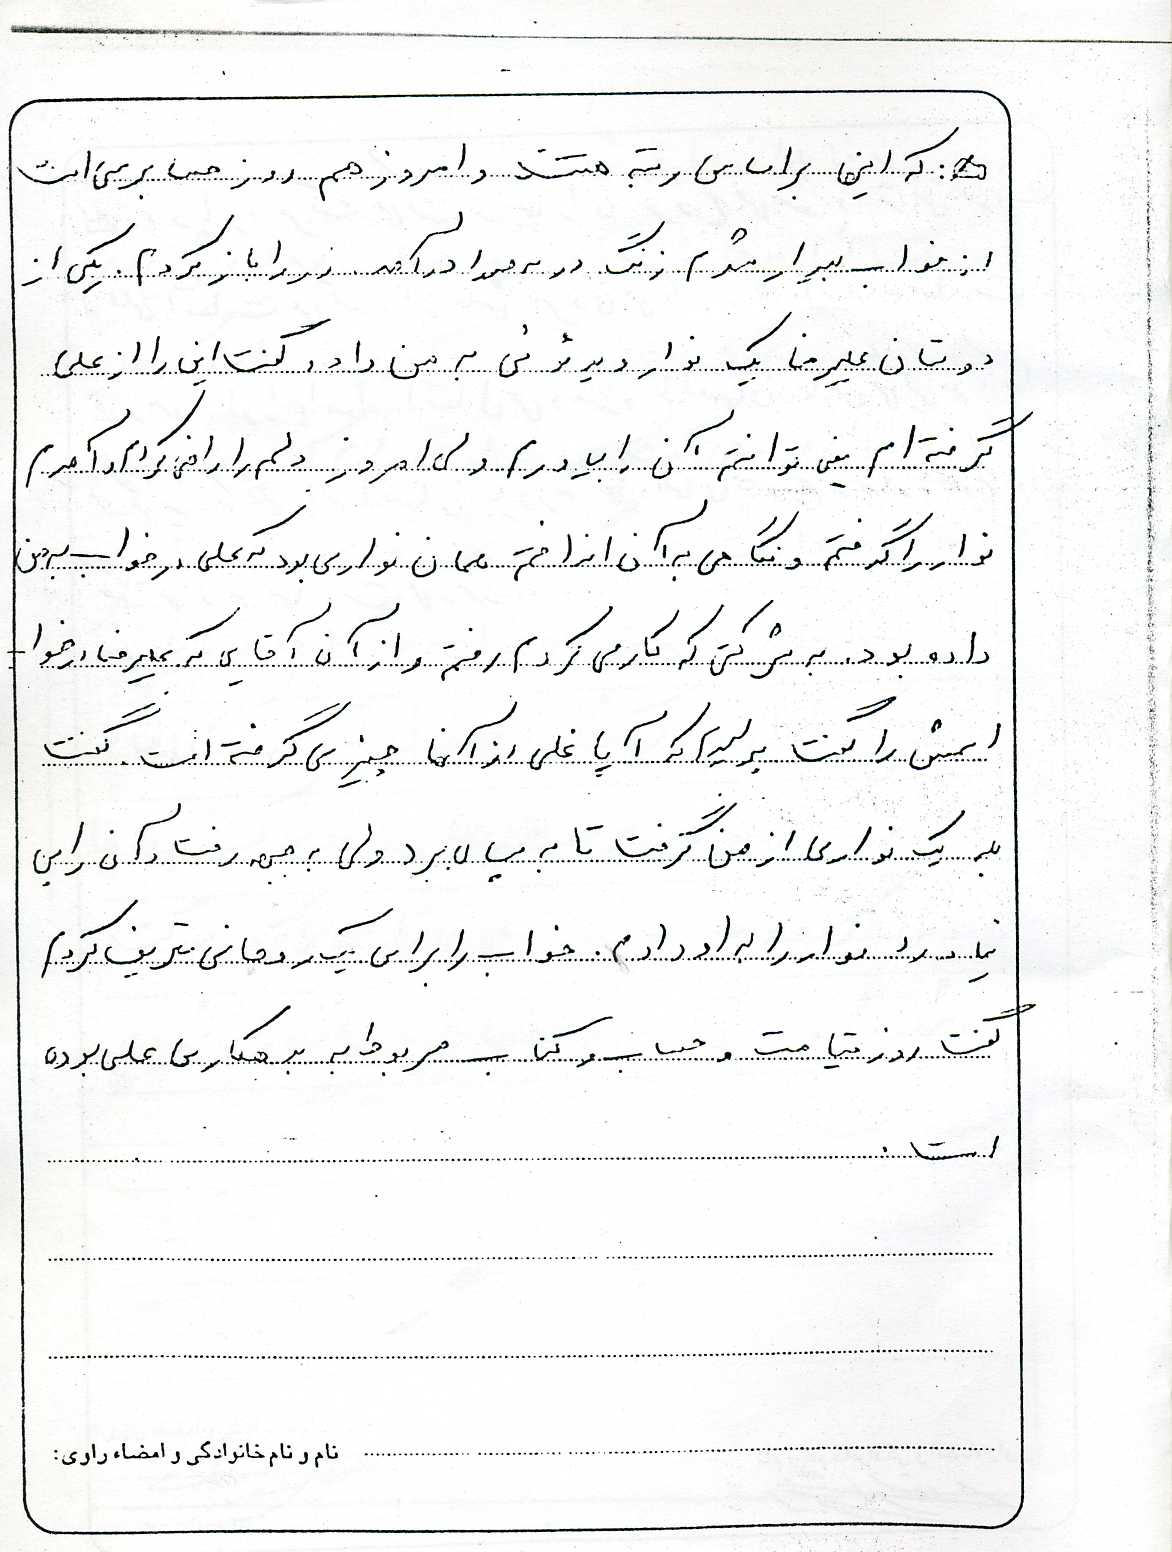 : که اینها براساس رتبه هستند و امروز هم روز حسابرسی است
از خواب بیدار شدم زنگ در به صدا درآمد. در را باز کردم. یکی از
دوستان علیرضا یک نوار ویدئوئی به من داد و گفت این را از علی
گرفته ام نمی توانستم آن را بیاورم ولی امروز دلم را راضی کردم و آمدم
نوار را گرفتم و نگاهی به آن انداختم همان نواری بود که علی در خواب به من
داده بود. به شرکتی که کار می کردم رفتم و از آن آقایی که علیرضا در خواب
اسمش را گفت پرسیدم که آیا علی از آنها چیزی گرفته است. گفت
بله یک نواری از من گرفت تا به میبرد ولی به جبهه رفت و آن را پس
نیاورد نوار را به او دادم. خواب را برای یک روحانی تعریف کردم
گفت روز قیامت و حساب و کتاب مربوط به بدهکاری علی بوده
است.
نام و نام خانوادگی و امضاء راوی: